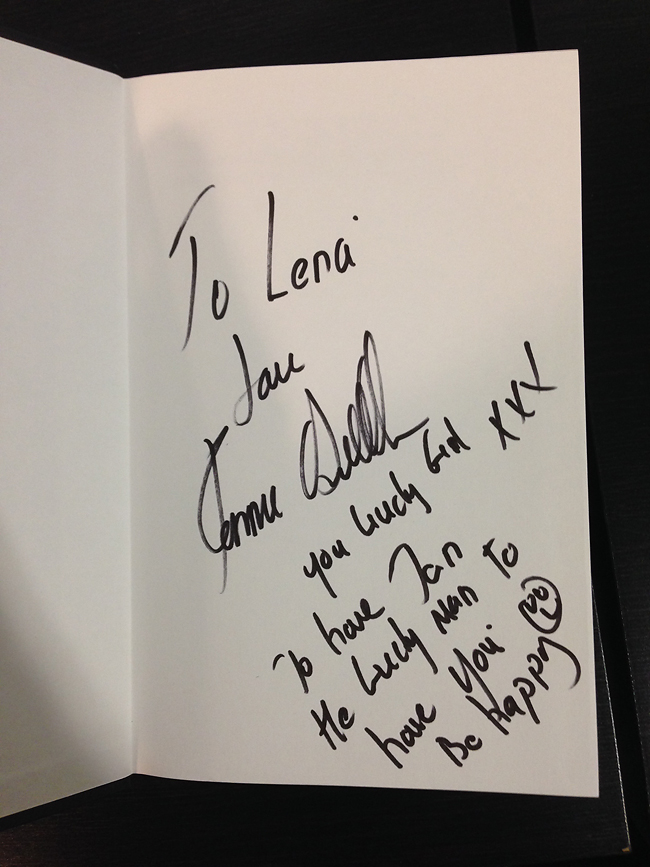 To Lena
you Lucky Girl xxx
To have Jan
He Lucky Man To
have You
Be happy